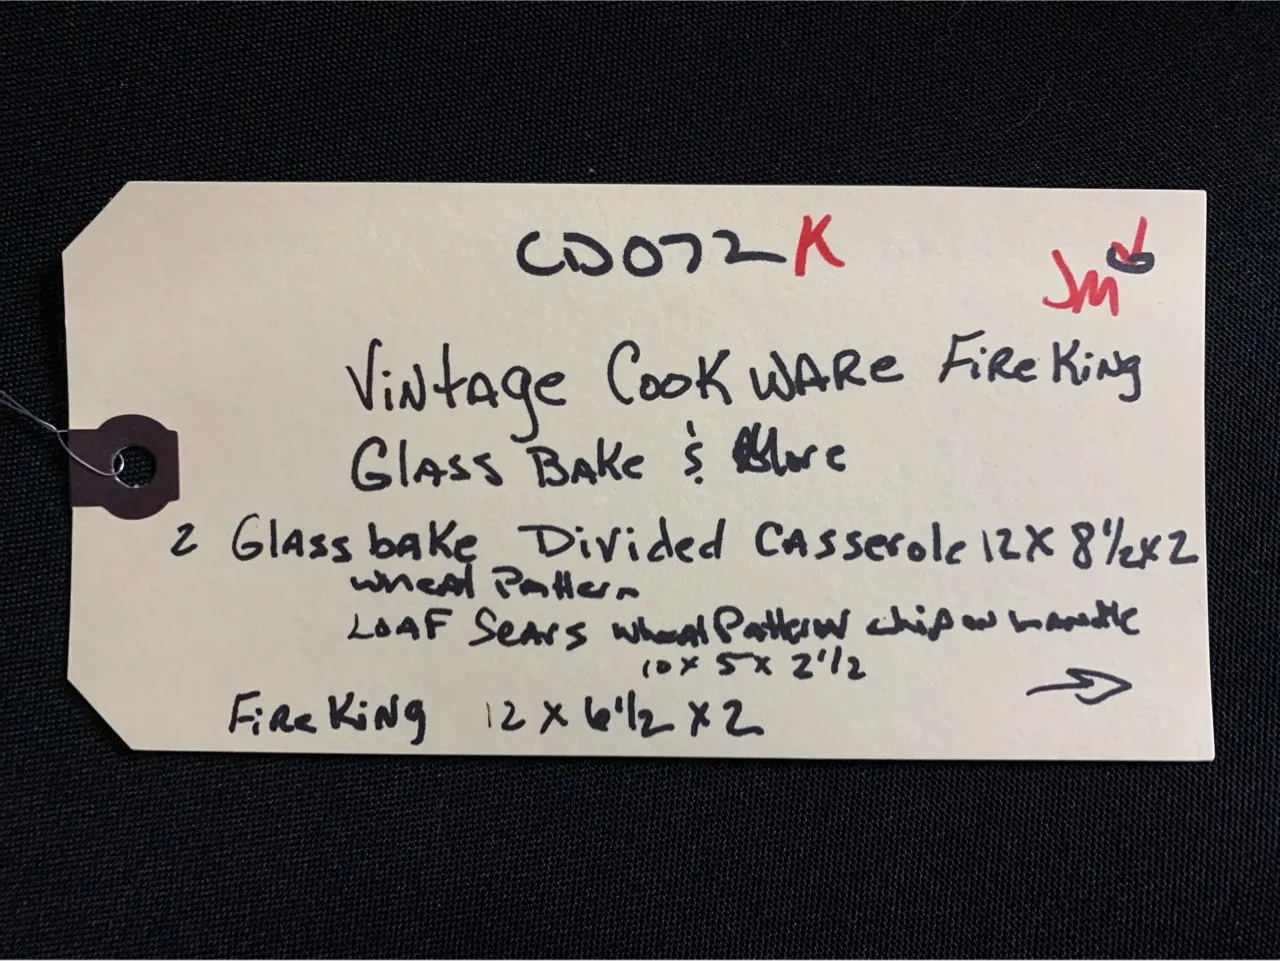 CD072K
JM
Vintage Cookware Fire King
Glass Bake & More
2 Glassbake Divided Casserole 12 x 8 1/2 x 2
wheat Pattern
LOAF Sears wheat Pattern chip on handle
10 x 5 x 2 1/2
Fire King 12 x 6 1/2 x 2